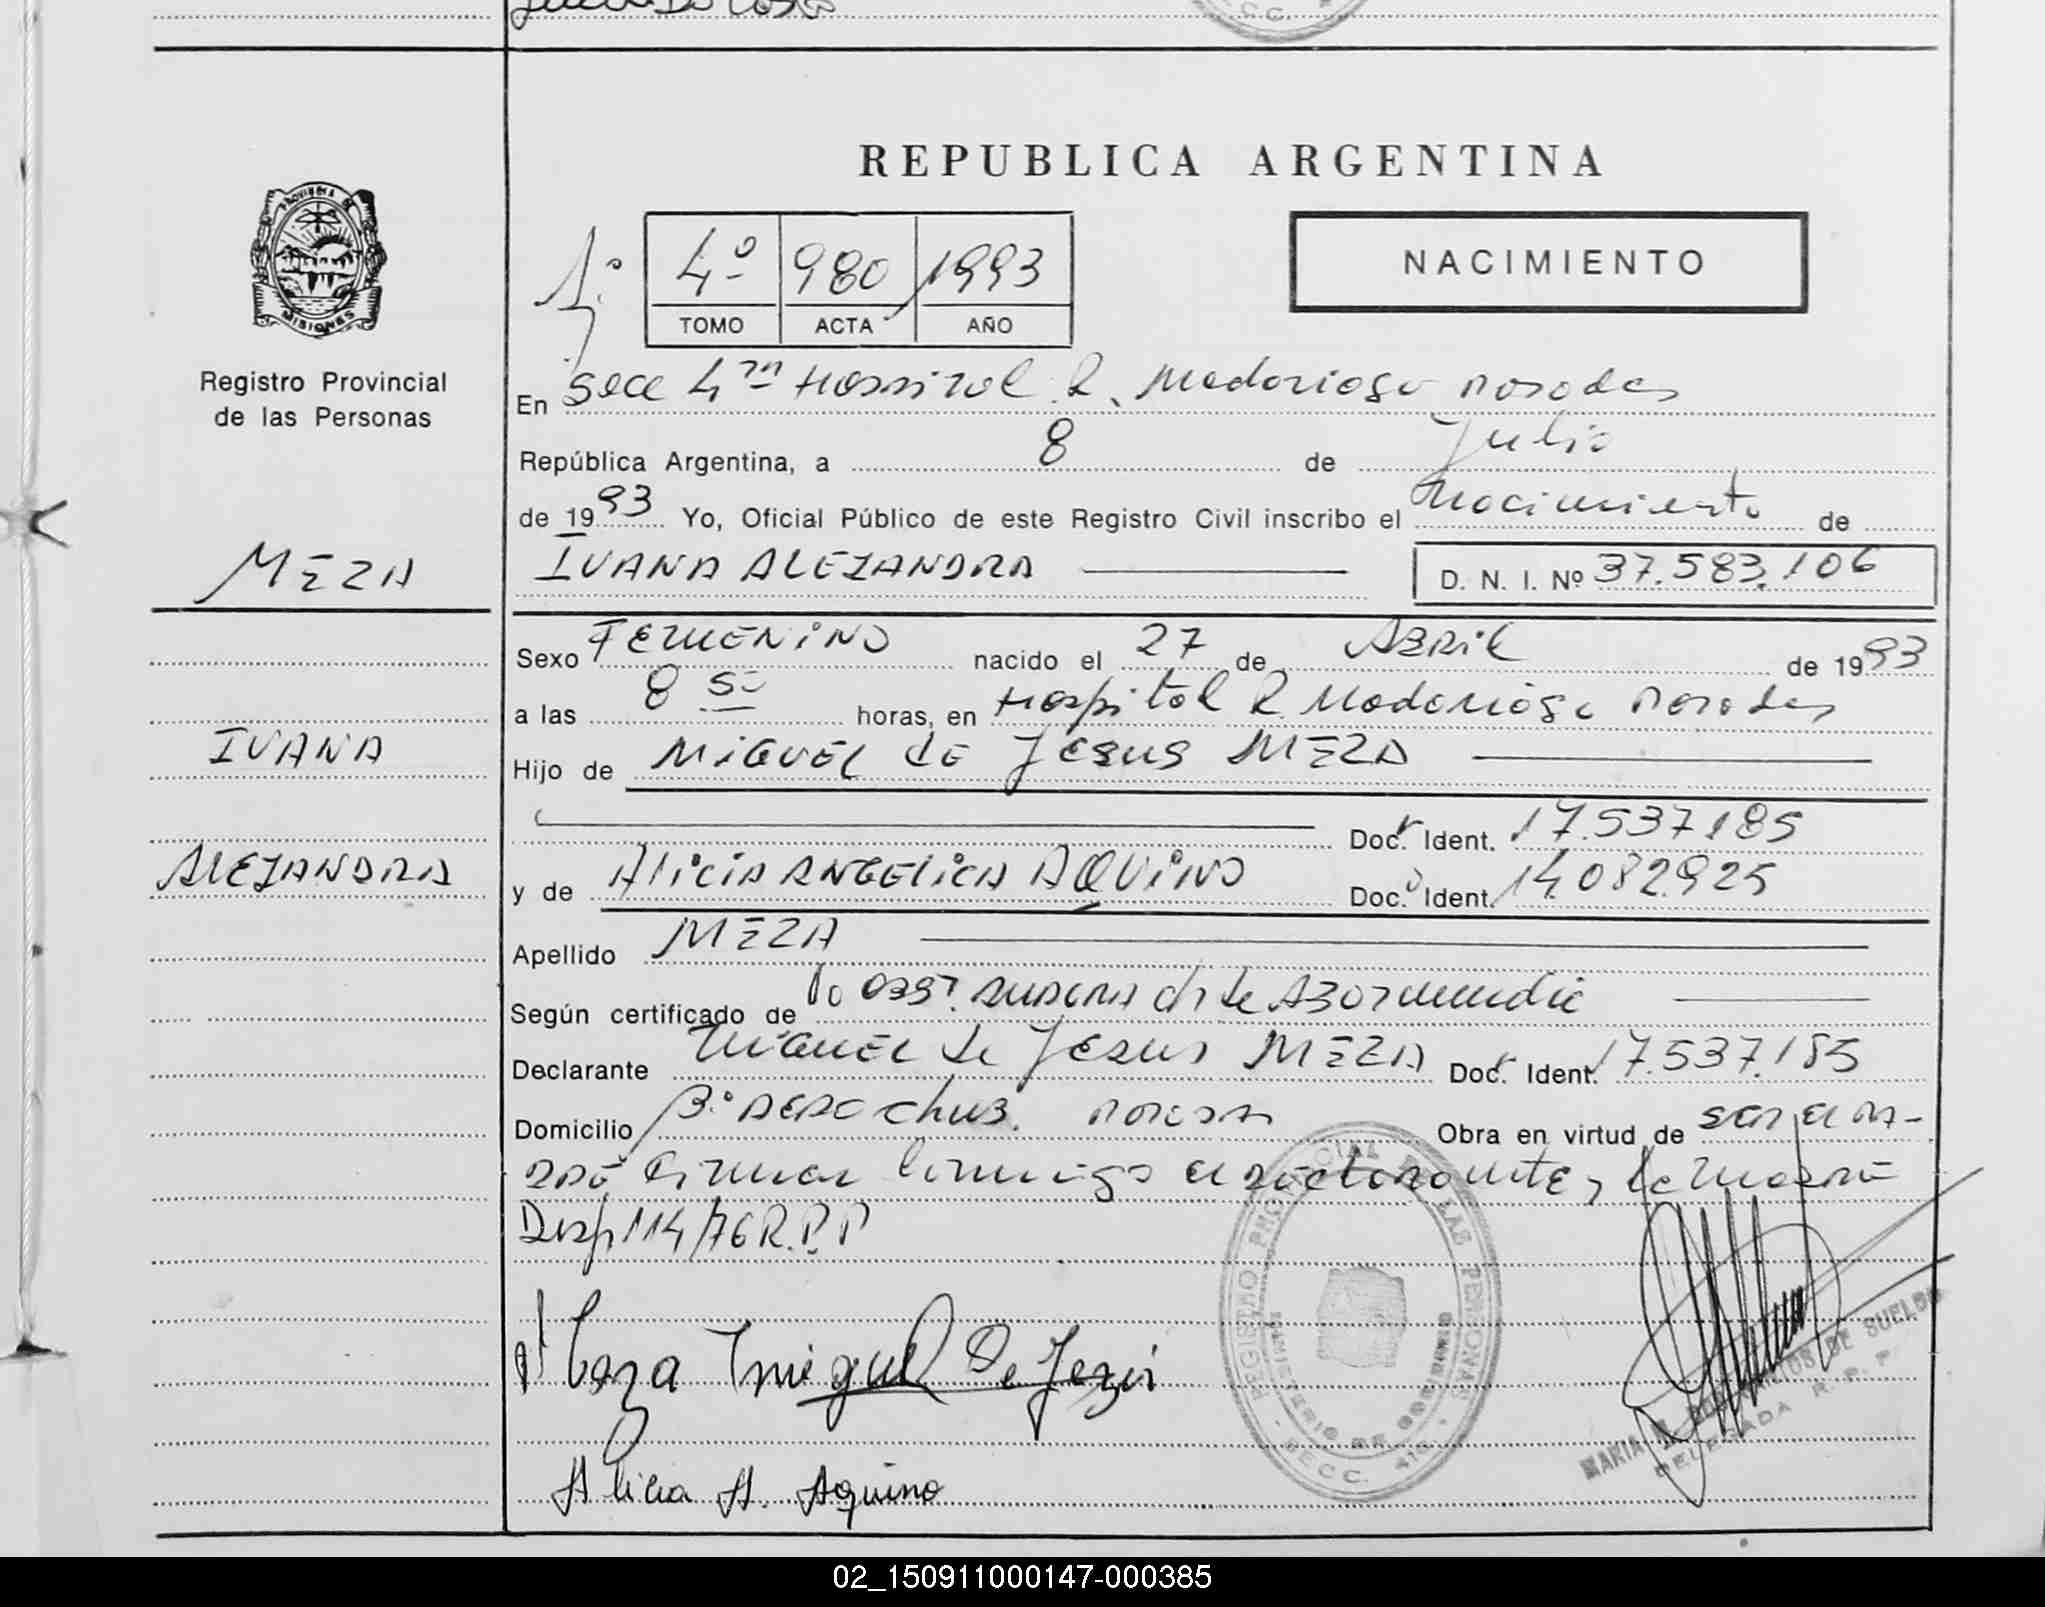 REPUBLICA ARGENTINA
PROVINCIA DE
MISIONES
Registro Provincial
de las Personas
4º 980 1993
TOMO ACTA AÑO
NACIMIENTO
En Secc 4ta Hospital R. Madariaga Posadas
República Argentina, a 8 de Julio
de 1993 Yo, Oficial Público de este Registro Civil inscribo el nacimiento de
MEZA
IVANA ALEJANDRA
D. N. I. Nº 37.583.106
Sexo FEMENINO nacido el 27 de ABRIL de 1993
a las 8 50 horas, en Hospital R. Madariaga Posadas
IVANA
Hijo de MIGUEL de JESUS MEZA
Doc. Ident. 17.537.185
ALEJANDRA
y de ALICIA ANGELICA AQUINO Doc. Ident. 14.082.925
Apellido MEZA
Según certificado de
Declarante MIGUEL de JESUS MEZA Doc. Ident. 17.537.185
Domicilio Bº Obra en virtud de
firman conmigo el declarante y la madre
Disp 114/76 R.P.P
Meza Miguel De Jezu
Alicia A. Aquino
REGISTRO PROVINCIAL DE LAS PERSONAS
MINISTERIO DE GOBIERNO
SECC. 4ta
MARIA DE SUELDO
DELEGADA R. P. P.
02_150911000147-000385